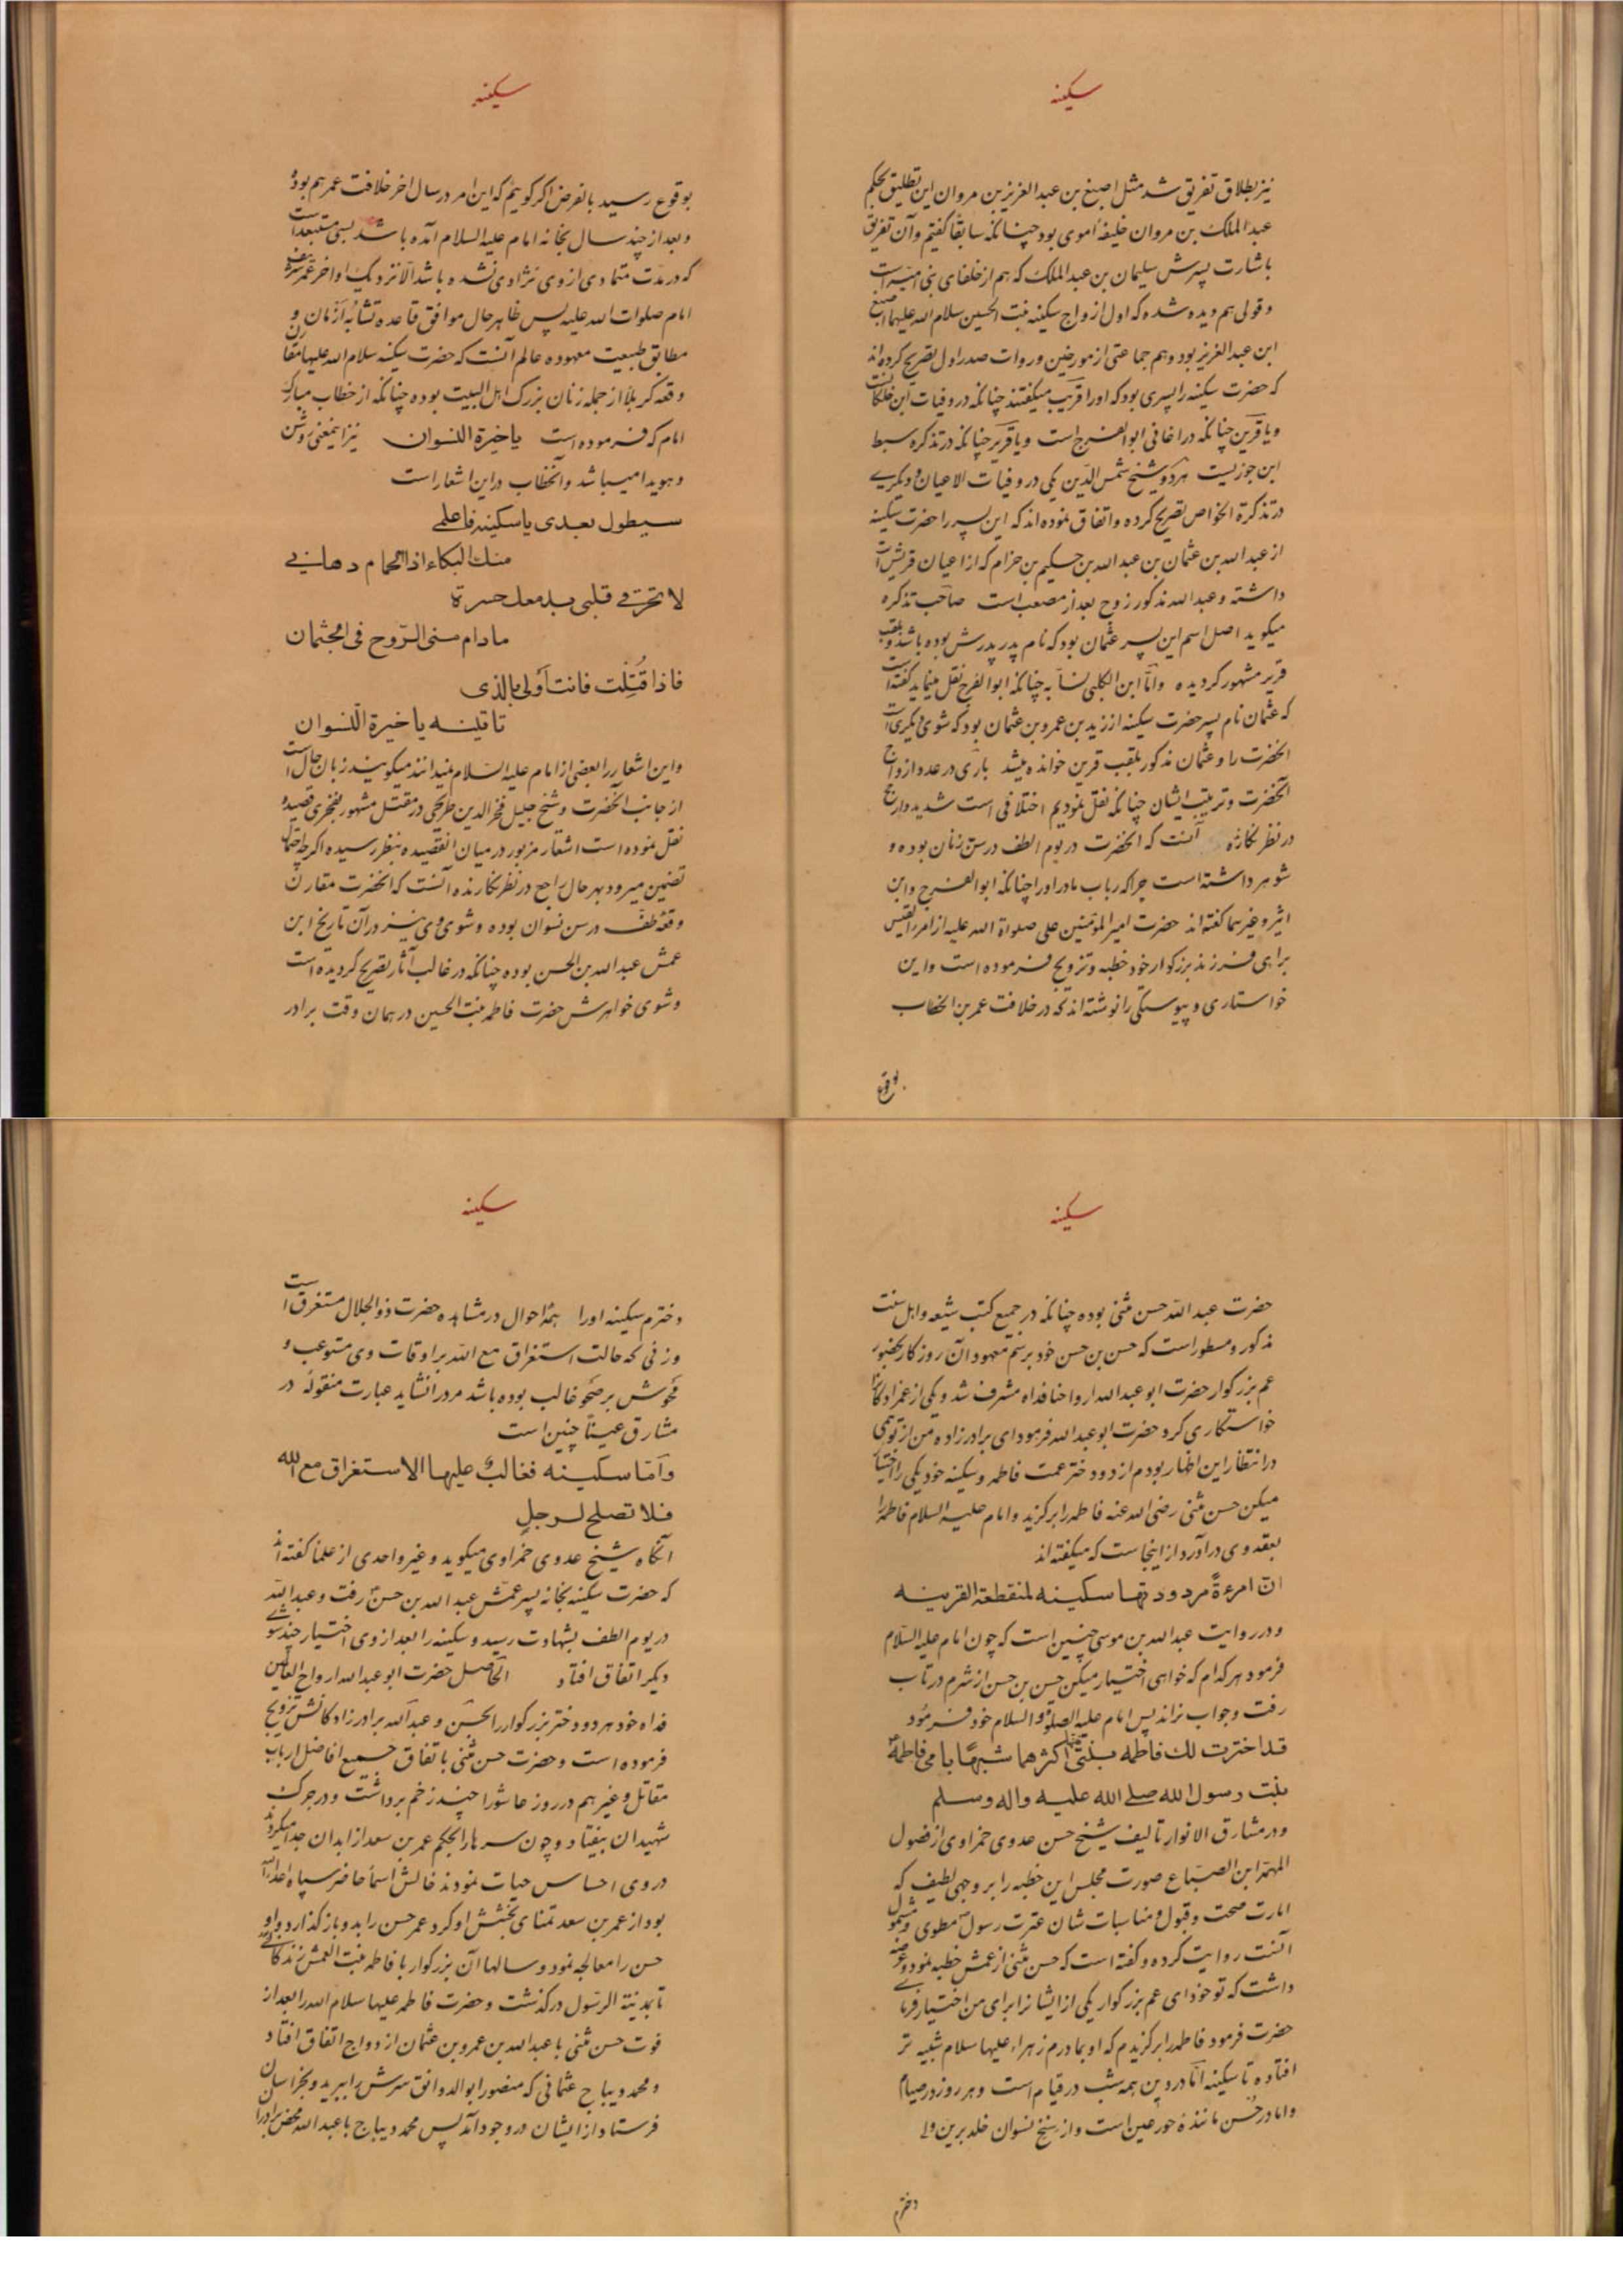 سکینه
نیز بطلاق تفریق شد مثل اصبغ بن عبد العزیز بن مروان این تطلیق بحکم
عبد الملک بن مروان خلیفهٔ اموی بود چنانکه سابقا کفتیم و آن تفریق
باشارت پسرش سلیمان بن عبد الملک که هم از خلفای بنی امیه است
و قولی هم دیده شده که اول ازواج سکینه بنت الحسین سلام الله علیهما اصبغ
ابن عبد العزیز بود و هم جماعتی از مورخین و روات صدر اول تصریح کرده اند
که حضرت سکینه را پسری بود که او را قریب میکفتند چنانکه در وفیات ابن خلکان است
و یا قرین چنانکه در اغانی ابو الفرج است و یا قریر چنانکه در تذکره سبط
ابن جوزیست هر دو شیخ شمس الدین یکی در وفیات الاعیان و دیکری
در تذکرة الخواص تصریح کرده و اتفاق نموده اند که این پسر را حضرت سکینه
از عبد الله بن عثمان بن عبد الله بن حکیم بن حزام که از اعیان قریش است
داشته و عبد الله مذکور زوج بعد از مصعب است صاحب تذکره
میکوید اصل اسم این پسر عثمان بود که نام پدر پدرش بوده باشد و بلقب
قریر مشهور کردیده و امّا ابن الکلبی نسّابه چنانکه ابو الفرج نقل مینماید کفته است
که عثمان نام پسر حضرت سکینه از زید بن عمرو بن عثمان بود که شوی دیکری است
آنحضرت را و عثمان مذکور بلقب قرین خوانده میشد باری در عدد ازواج
آنحضرت و ترتیب ایشان چنانکه نقل نمودیم اختلافی است شدید و ارجح
در نظر نکارنده آنست که آنحضرت در یوم الطف در سن زنان بوده و
شوهر داشته است چرا که رباب مادر او را چنانکه ابو الفرج و ابن
اثیر و غیرهما کفته اند حضرت امیر المؤمنین علی صلواة الله علیه از امرء القیس
برای فرزند بزرکوار خود خطبه و تزویج فرموده است و این
خواستاری و پیوستکی را نوشته اند که در خلافت عمر بن الخطاب
بوقوع
سکینه
بوقوع رسید بالفرض اکر کویم که این امر در سال اخر خلافت عمر هم بوده
و بعد از چند سال بخانه امام علیه السلام آمده باشد بسی مستبعد است
که در مدّت متمادی از وی نژادی نشده باشد الا نزدیک اواخر عمر شریف
امام صلوات الله علیه پس ظاهر حال موافق قاعده تشابه ازمان و
مطابق طبیعت معهوده عالم آنست که حضرت سکینه سلام الله علیها مقارن
وقعه کربلا از جمله زنان بزرک اهل البیت بوده چنانکه از خطاب مبارک
امام که فرموده است یا خیرة النسوان نیز اینمعنی روشن
و هویدا میباشد و آنخطاب در این اشعار است
سیطول بعدی یا سکینه فاعلمی
منك البکاء اذ الحمام دهانی
لا تحرقی قلبی بدمعك حسرة
مادام منی الرّوح فی الجثمان
فاذا قُتِلْت فانت أولی بالذی
تاتینه یا خیرة النسوان
و این اشعار را بعضی از امام علیه السّلام نمیدانند میکویند زبان حال است
از جانب آنحضرت و شیخ جلیل فخر الدین طریحی در مقتل مشهور بفخری قصیده
نقل نموده است اشعار مزبور در میان آنقصیده بنظر رسیده اکر چه احتمال
تضمین میرود بهر حال راجح در نظر نکارنده آنست که آنحضرت مقارن
وقعهٔ طف در سن نسوان بوده و شوی وی نیز در آن تاریخ ابن
عمش عبد الله بن الحسن بوده چنانکه در غالب آثار تصریح کردیده است
و شوی خواهرش حضرت فاطمه بنت الحسین در همان وقت برادر
سکینه
حضرت عبد الله حسن مثنی بوده چنانکه در جمیع کتب شیعه و اهل سنت
مذکور و مسطور است که حسن بن حسن خود برسم معهود آن روزکار بحضور
عم بزرکوار حضرت ابو عبد الله ارواحنا فداه مشرف شد و یکی از عمزادکانرا
خواستکاری کرد حضرت ابو عبد الله فرمود ای برادر زاده من از تو همی
در انتظار این اظهار بودم از دو دختر عمت فاطمه و سکینه خود یکی را اختیار
میکن حسن مثنی رضی الله عنه فاطمه را برکزید و امام علیه السلام فاطمه را
بعقد وی در آورد از اینجاست که میکفته اند
انّ امرءةً مردودتها سکینه لمنقطعة القرینه
و در روایت عبد الله بن موسی چنین است که چون امام علیه السّلام
فرمود هر کدام که خواهی اختیار میکن حسن بن حسن از شرم در تاب
رفت و جواب نراند پس امام علیه الصلوة و السلام خود فرمود
قد اخترت لك فاطمه بنتی فهی اکثرهما شبهًا بامی فاطمة
بنت رسول الله صلی الله علیه واله وسلم
و در مشارق الانوار تالیف شیخ حسن عدوی حمزاوی از فصول
المهمّه ابن الصبّاغ صورت مجلس این خطبه را بر وجهی لطیف که
امارت صحت و قبول و مناسبات شان عترت رسول مطوی و مشمول
آنست روایت کرده و کفته است که حسن مثنی از عمش خطبه نمود و عرضه
داشت که تو خود ای عم بزرکوار یکی از ایشانرا برای من اختیار فرمای
حضرت فرمود فاطمه را برکزیدم که او بمادرم زهراء علیها سلام شبیه تر
افتاده تا سکینه امّا در دین همه شب در قیام است و هر روز در صیام
و اما در حُسن مانندهٔ حور عین است و از سنخ نسوان خلد برین و اما
دخترم
سکینه
دخترم سکینه او را همهٔ احوال در مشاهده حضرت ذو الجلال مستغرق است
و زنی که حالت استغراق مع الله بر اوقات وی مستوعب و
محوش بر صحو غالب بوده باشد مرد را نشاید عبارت منقوله در
مشارق عیناً چنین است
وأمّا سکینه فغالبٌ علیها الاستغراق مع الله
فلا تصلح لرجلٍ
آنکاه شیخ عدوی حمزاوی میکوید و غیر واحدی از علما کفته اند
که حضرت سکینه بخانه پسر عمّش عبد الله بن حسن رفت و عبد الله
در یوم الطف بشهادت رسید و سکینه را بعد از وی اختیار چند شوی
دیکر اتفاق افتاد الحاصل حضرت ابو عبد الله ارواح العالمین
فداه خود هر دو دختر بزرکوار را بحسن و عبد الله برادر زادکانش تزویج
فرموده است و حضرت حسن مثنی باتفاق جمیع افاضل ارباب
مقاتل و غیرهم در روز عاشورا چند زخم برداشت و در جرک
شهیدان بیفتاد و چون سرها را بحکم عمر بن سعد از ابدان جدا میکردند
در وی احساس حیات نمودند خالش اسما حاضر سپاه اعداء الله
بود از عمر بن سعد تمنای بخشش او کرد عمر حسن را بدو باز کذارد و او
حسن را معالجه نمود و سالها آن بزرکوار با فاطمه بنت العمش زندکانی
تا بمدینة الرسول در کذشت و حضرت فاطمه علیها سلام الله را بعد از
فوت حسن مثنی با عبد الله بن عمرو بن عثمان ازدواج اتفاق افتاد
و محمد دیباج عثمانی که منصور ابو الدوانق سرش را ببرید و بخراسان
فرستاد از ایشان در وجود آمد پس محمد دیباج با عبد الله محض برادران